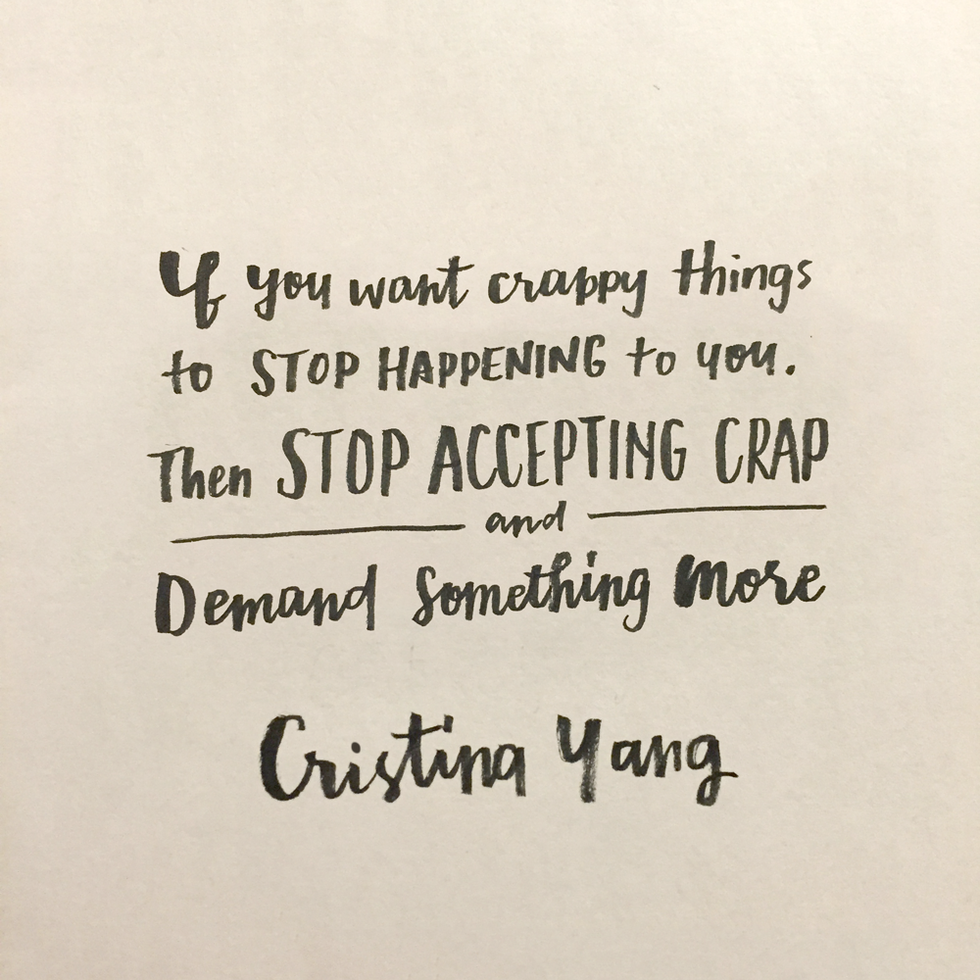 If you want crappy things
to STOP HAPPENING to you.
Then STOP ACCEPTING CRAP
and
Demand Something More
Cristina Yang